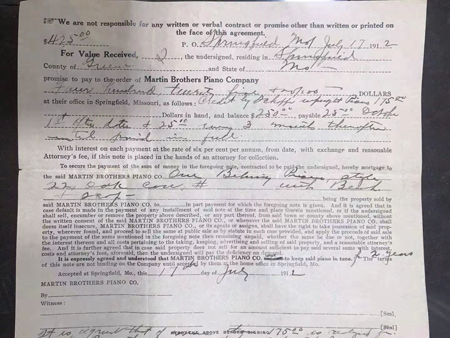 We are not responsible for any written or verbal contract or promise other than written or printed on
the face of this agreement.
$425.00 P. O. Springfield Mo July 17 1912
For Value Received, I the undersigned, residing in Springfield
County of Greene and State of Mo
promise to pay to the order of Martin Brothers Piano Company
Four hundred Twenty five & no/100 DOLLARS
at their office in Springfield, Missouri, as follows: Credit by upright Piano 175.00
Dollars in hand, and balance $250.00, payable 25.00
1st after date & 25.00 every 3 months thereafter
until paid in full
With interest on each payment at the rate of six per cent per annum, from date, with exchange and reasonable
Attorney's fee, if this note is placed in the hands of an attorney for collection.
To secure the payment of the sum of money in the foregoing note, contracted to be paid the undersigned, hereby mortgage to
the said MARTIN BROTHERS PIANO CO. One Piano style
Oak Case # with Bench
being the property sold by
said MARTIN BROTHERS PIANO CO. to in part payment for which the foregoing note is given. And it is agreed that in
case default is made in the payment of any installment of said note at the time and place therein mentioned, or if the undersigned
shall sell, encumber or remove the property above described, or any part thereof, from said town or county above mentioned, without
the written consent of the said MARTIN BROTHERS PIANO CO., or whenever the said MARTIN BROTHERS PIANO CO. shall
deem itself insecure, MARTIN BROTHERS PIANO CO., or its agents or assigns, shall have the right to take possession of said property,
wherever found, and proceed to sell the same at public sale as by statute in such case provided, and apply the proceeds of said sale
to the payment of the sums mentioned in the foregoing note then remaining unpaid, whether then due or not, together with
the interest thereon and all costs pertaining to the taking, keeping, advertising and selling of said property, and a reasonable attorney's
fee. And it is further agreed that in case said property does not sell for an amount sufficient to pay said several sums with interest,
costs and attorney's fees, aforesaid, then the undersigned will pay the deficiency on
It is expressly agreed and understood that MARTIN BROTHERS PIANO CO. to keep said piano in tune. for 2 years The terms
of this note are not binding on the Company until accepted by them at the home office in Springfield, Mo.
Accepted at Springfield, Mo., this 17th day of July 1912
MARTIN BROTHERS PIANO CO.
By
Witness:
[Seal]
[Seal]
It is agreed that if 75.00 is